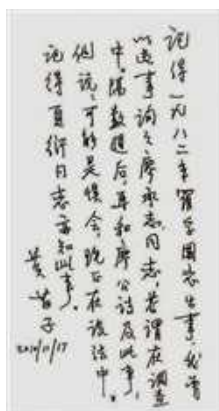 记得一九八二年罹李国志出事，我曾
以这事询之廖承志同志，答谓在调查
中，隔数週后，再和廖公谈及此事，
他说：可能是误会，现正在谈话中。
记得夏衍同志亦知此事。
黄苗子
2010/11/17